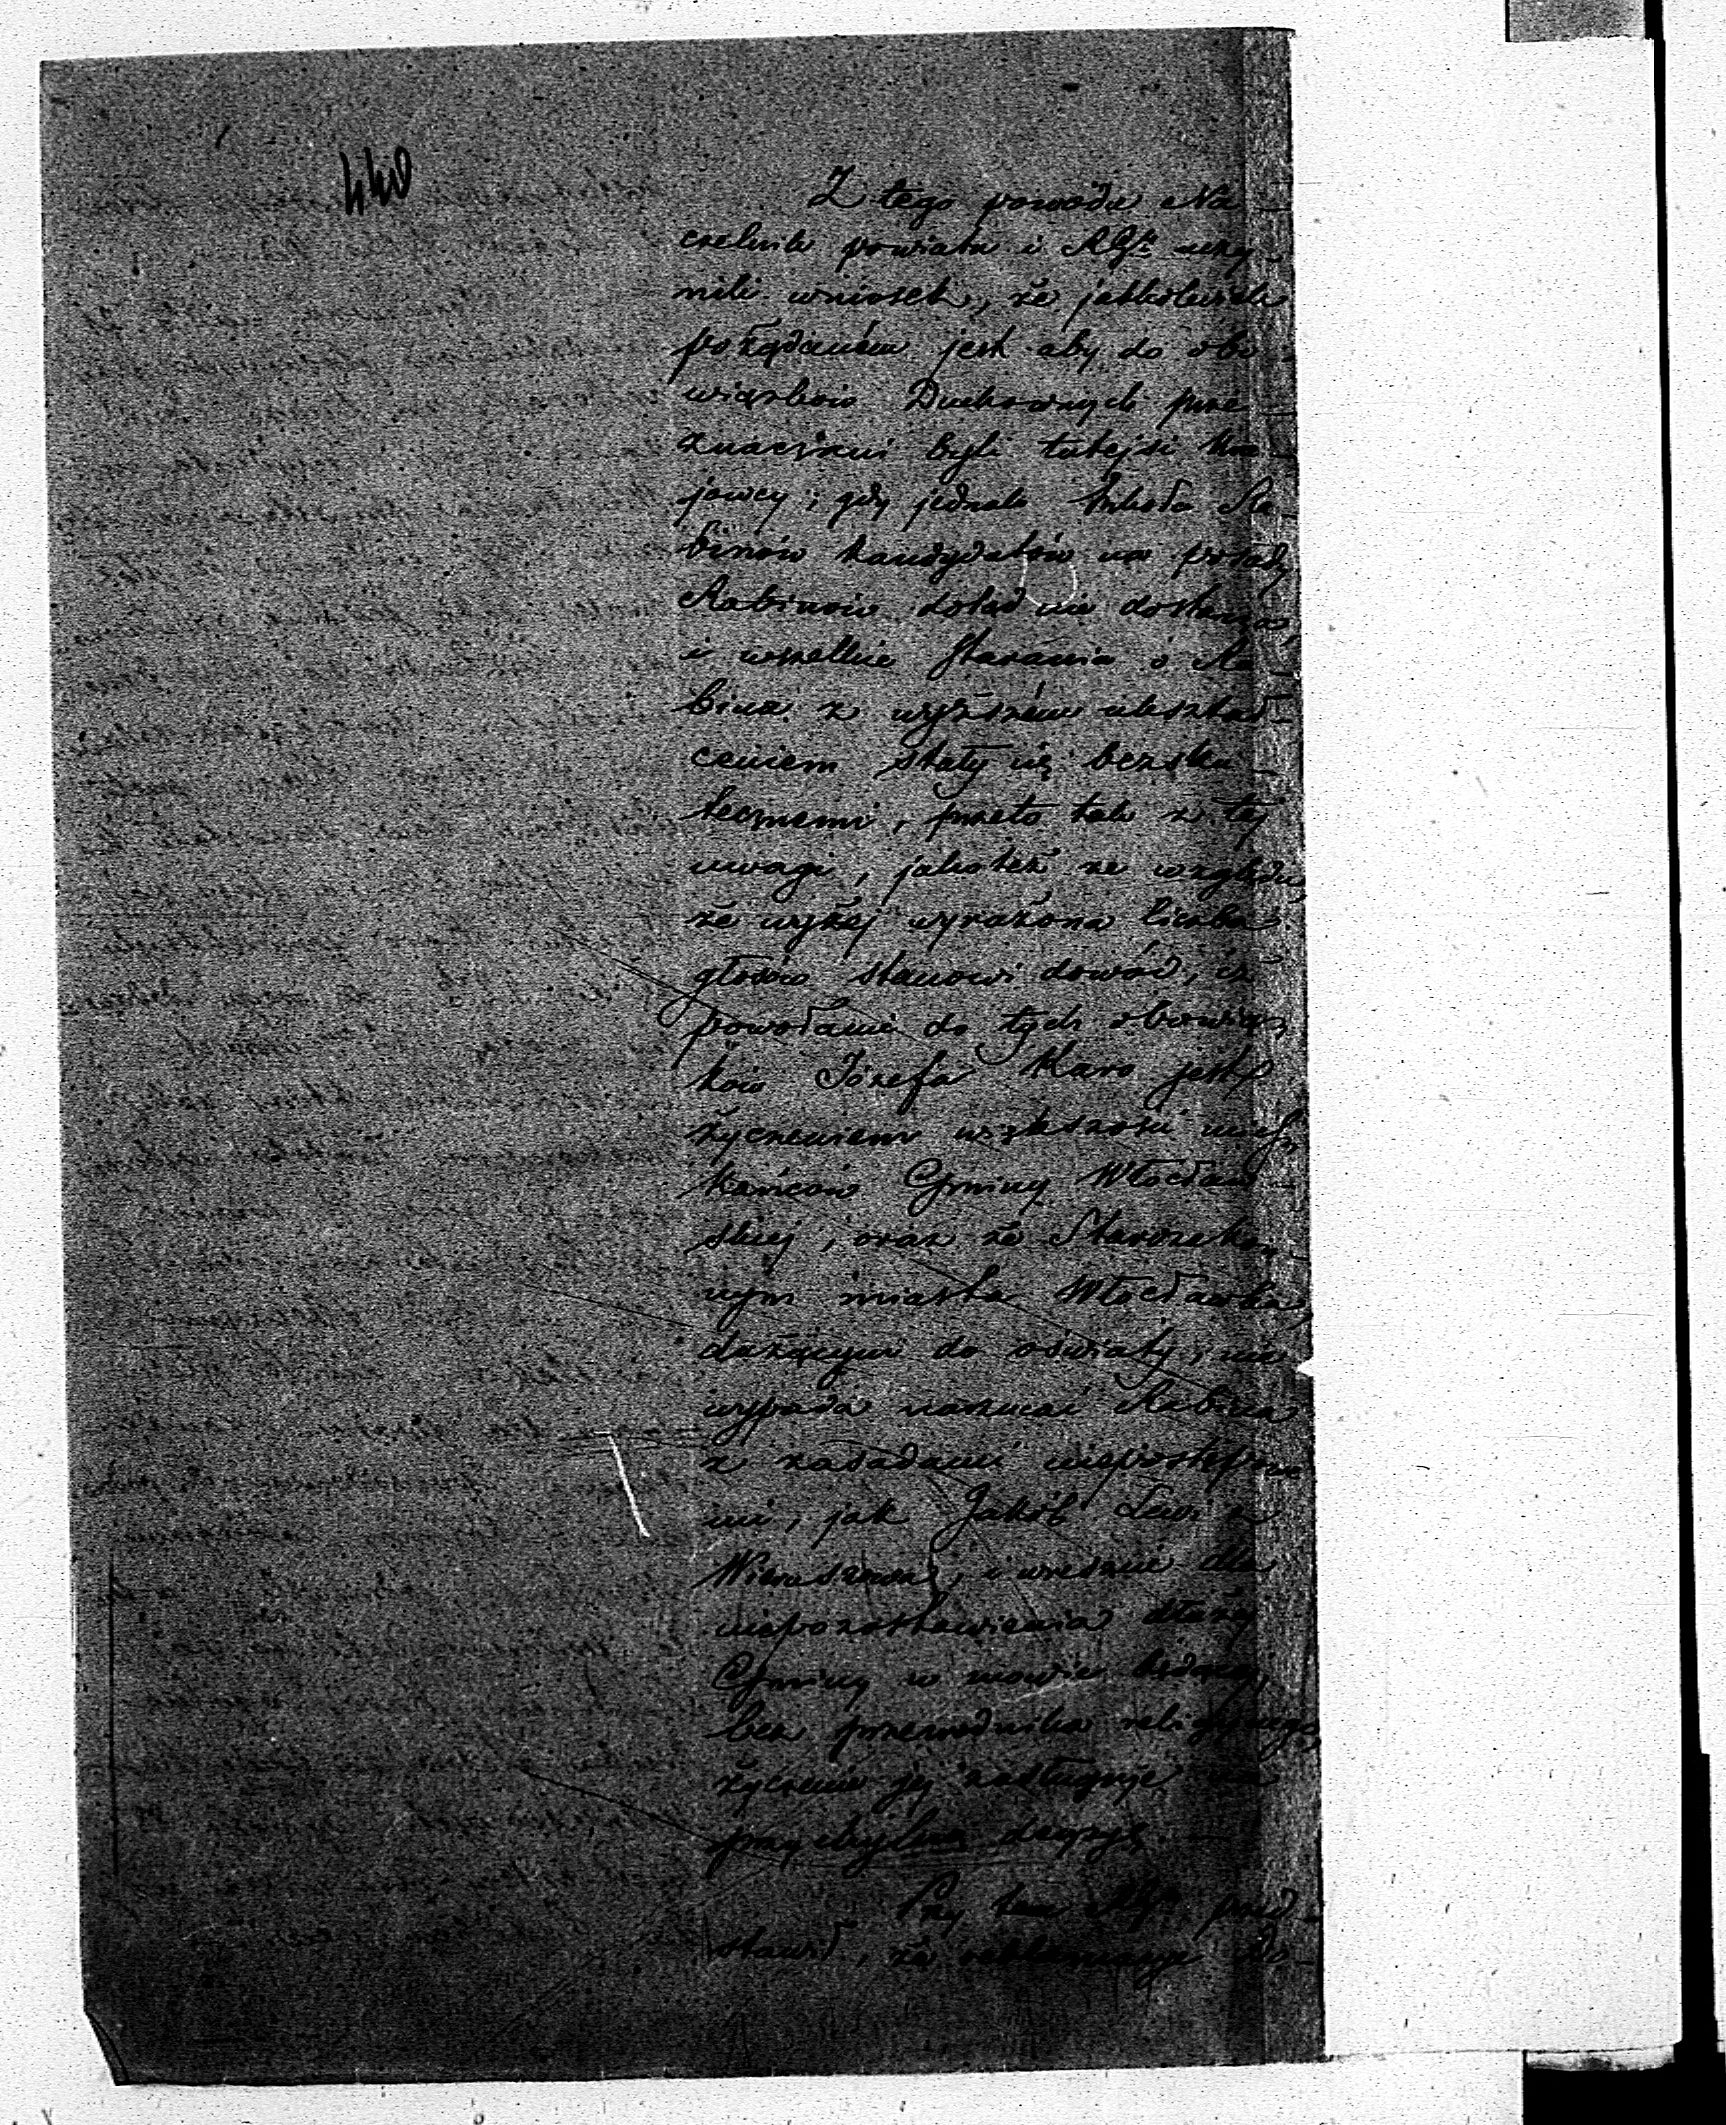 440
Z tego powodu Na-
czelnik powiatu i RGbr uczy-
nili wniosek, że jakkolwiek
pożądaném jest aby do obo-
wiązków Duchownych prze-
znaczeni byli tutejsi kra-
jowcy; gdy jednak Szkoła Ra-
binów kandydatów na posady
Rabinów dotąd nie dostarcza,
i wszelkie starania o Ra-
bina z wyższém ukształ-
ceniem stały się bezsku-
tecznemi, przeto tak z tej
uwagi, jakoteż ze względu,
że wyżej wyrażona liczba
głosów stanowi dowód, iż
powołanie do tych obowiąz-
ków Józefa Karo jest
życzeniem większości miesz-
kańców Gminy Włocław-
skiej, oraz że Starozakon-
nym miasta Włocławka,
dążącym do oświaty, nie
wypada narzucać Rabina
z zasadami niepostępowe-
mi, jak Jakób Lewi z
Wieruszowa, i wreszcie dla
niepozostawienia dłużej
Gminy w mowie będącej
bez przewodnika religijnego,
życzenie jej zasługuje na
przychylną decyzję. —
Przy tem przed-
stawił, że reklamacje